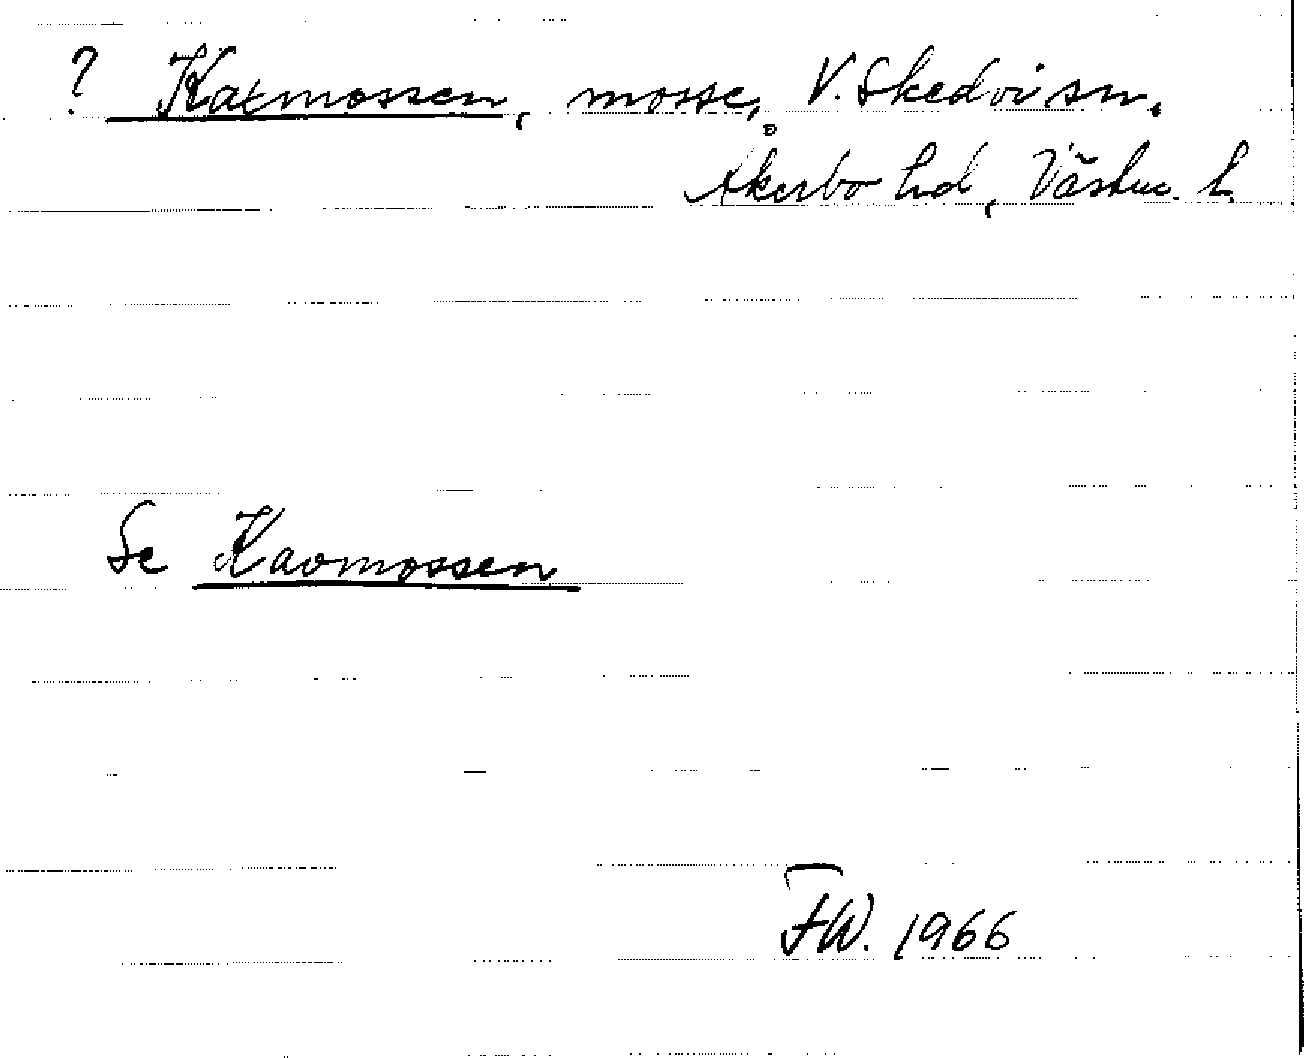 ? Katmossen, mosse, V. Skedvi sn.
Åkerbo hd, Västm. l.
Se Kavmossen
FW. 1966